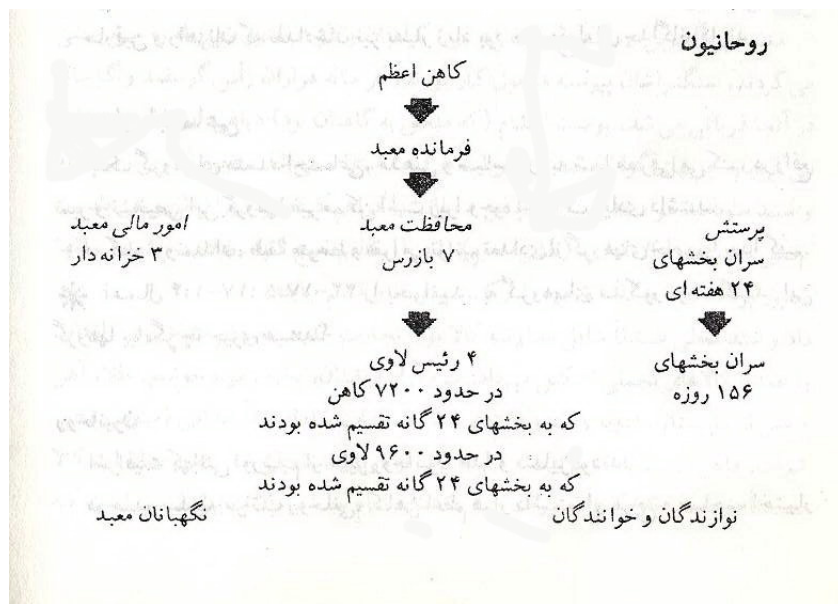 روحانیون
کاهن اعظم
فرمانده معبد
پرستش
سران بخشهای
۲۴ هفته‌ای
سران بخشهای
۱۵۶ روزه
محافظت معبد
۷ بازرس
امور مالی معبد
۳ خزانه دار
۴ رئیس لاوی
در حدود ۷۲۰۰ کاهن
که به بخشهای ۲۴ گانه تقسیم شده بودند
در حدود ۹۶۰۰ لاوی
که به بخشهای ۲۴ گانه تقسیم شده بودند
نوازندگان و خوانندگان
نگهبانان معبد